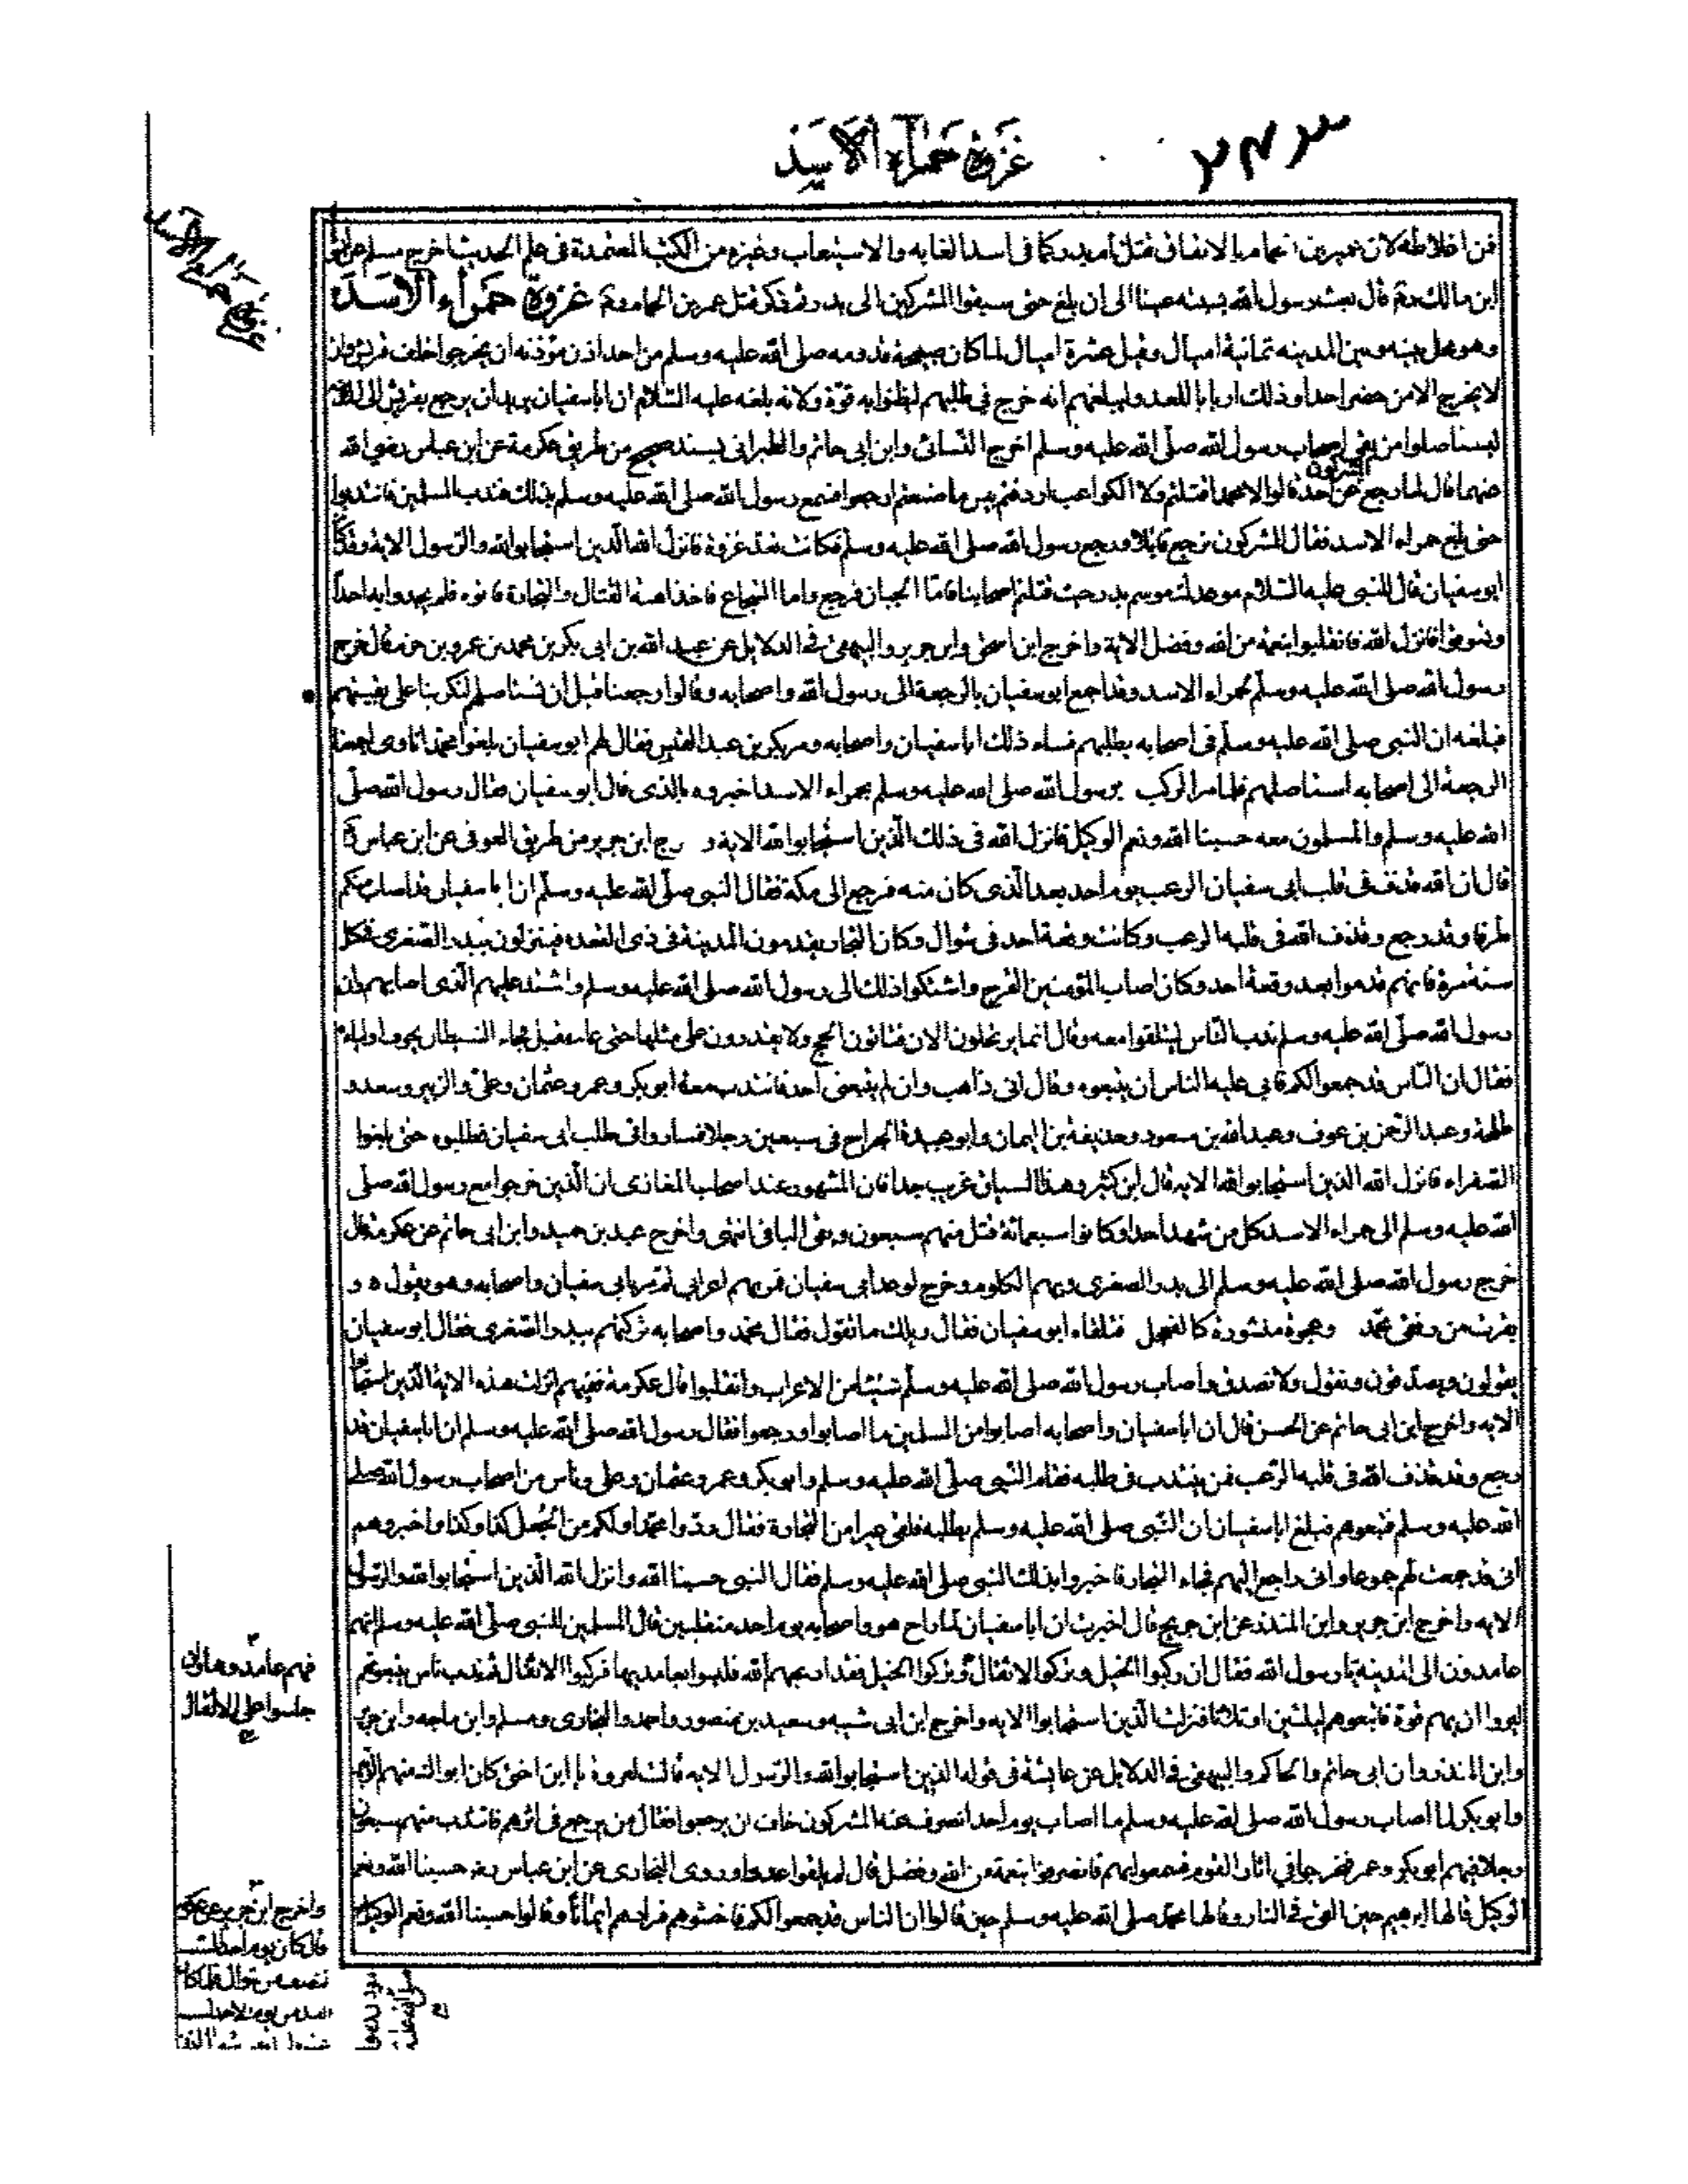 ٢٤٣
غَزوة حَمرآء الأسَد
فمن اغلاطه لان عمير بن الحمام بالاتفاق قتل ببدر وكما في اسد الغابه والاستيعاب وغيره من الكتب المعتمدة في علم الحديث اخرج مسلم عن انس
ابن مالك قال بعث رسول الله بسبسه عينا الى ان بلغ حتى سبقوا المشركين الى بدر ثم ذكر قتل عمير بن الحمام غزوة حمراء الاسد
وهو محل بينه وبين المدينه ثمانية اميال وقيل عشرة اميال لما كان صبيحة قدومه صلى الله عليه وسلم من احد اذن مؤذنه ان يخرجوا خلف قريش وان
لا يخرج الا من حضر احدا وذلك ارهابا للعدو وليبلغهم انه خرج في طلبهم ليظنوا به قوة ولانه بلغه عليه السلام ان ابا سفيان يريد ان يرجع بقريش الى المدينة
ليستاصلوا من بقي اصحاب رسول الله صلى الله عليه وسلم اخرج النسائى وابن ابى حاتم والطبرانى بسند صحيح من طريق عكرمة عن ابن عباس رضي الله
عنهما قال لما رجع المشركون عن احد قالوا لا محمدا قتلتم ولا الكواعب اردفتم بئس ما صنعتم ارجعوا فسمع رسول الله صلى الله عليه وسلم بذلك فندب المسلمين فانتدبوا
حتى بلغ حمراء الاسد فقال المشركون نرجع قابلا ورجع رسول الله صلى الله عليه وسلم فكانت تعد غزوة فانزل الله الذين استجابوا لله والرسول الاية وقد كان
ابو سفيان قال للنبى عليه السلام موعدك موسم بدر حيث قتلتم اصحابنا فاما الجبان فرجع واما الشجاع فاخذ اهبة القتال والتجارة فاتوه فلم يجدوا به احدا
وتسوقوا فانزل الله فانقلبوا بنعمة من الله وفضل الاية واخرج ابن اسحق وابن جرير والبيهقى فى الدلايل عن عبد الله بن ابى بكر بن محمد بن عمرو بن حزم قال خرج
رسول الله صلى الله عليه وسلم لحمراء الاسد وقد اجمع ابو سفيان بالرجعة الى رسول الله واصحابه وقالوا رجعنا قبل ان نستاصلهم لنكرن على بقيتهم
فبلغه ان النبى صلى الله عليه وسلم فى اصحابه يطلبهم فساء ذلك ابا سفيان واصحابه ومر بكر بن عبد القيس فقال لهم ابو سفيان بلغوا محمدا انا قد اجمعنا
الرجعة الى اصحابه لنستاصلهم فلما مر الركب برسول الله صلى الله عليه وسلم بحمراء الاسد اخبروه بالذى قال ابو سفيان فقال رسول الله صلى
الله عليه وسلم والمسلمون معه حسبنا الله ونعم الوكيل فانزل الله فى ذلك الذين استجابوا لله الاية و رج ابن جرير من طريق العوفى عن ابن عباس
قال ان الله قذف فى قلب ابى سفيان الرعب يوم احد بعد الذى كان منه فرجع الى مكة فقال النبى صلى الله عليه وسلم ان ابا سفيان قد اصاب منكم
طرفا وقد رجع وقذف الله فى قلبه الرعب وكانت وقعة احد فى شوال وكان التجار يقدمون المدينة فى ذى القعده فينزلون ببدر الصغرى فى كل
سنة مرة فانهم قدموا بعد وقعة احد وكان اصاب المؤمنين القرح واشتكوا ذلك الى رسول الله صلى الله عليه وسلم واشتد عليهم الذى اصابهم وان
رسول الله صلى الله عليه وسلم ندب الناس لينطلقوا معه وقال انما يرتحلون الان فتاتون الحج ولا يقدرون على مثلها حتى عام مقبل فجاء الشيطان يخوف اولياءه
فقال ان الناس قد جمعوا لكم فابى عليه الناس ان يتبعوه وقال انى ذاهب وان لم يتبعنى احد فانتدب معه ابو بكر وعمر وعثمان وعلى والزبير وسعد و
طلحة وعبد الرحمن بن عوف وعبد الله بن مسعود وحذيفة بن اليمان وابو عبيدة الجراح فى سبعين رجلا فساروا فى طلب ابى سفيان فطلبوه حتى بلغوا
الصفراء فانزل الله الذين استجابوا لله الاية قال ابن كثير وهذا السياق غريب جدا فان المشهور عند اصحاب المغازى ان الذين خرجوا مع رسول الله صلى
الله عليه وسلم الى حمراء الاسد كل من شهد احدا وكانوا سبعمائة قتل منهم سبعون وبقى الباقى انتهى واخرج عبد بن حميد وابن ابى حاتم عن عكرمة قال
خرج رسول الله صلى الله عليه وسلم الى بدر الصغرى وبهم الكلوم وخرج لوعد ابى سفيان فمر بهم اعرابى ثم مر بابى سفيان واصحابه وهو يقول ه و
نفرت من رفقتى محمد وعجوة منثورة كالعنجد فتلقاه ابو سفيان فقال ويلك ما تقول فقال محمد واصحابه تركتهم ببدر الصغرى فقال ابو سفيان
يقولون ويصدقون ونقول ولا نصدق واصاب رسول الله صلى الله عليه وسلم شيئا من الاعراب وانقلبوا قال عكرمة ففيهم انزلت هذه الاية الذين استجابوا
الاية واخرج ابن ابى حاتم عن الحسن قال ان ابا سفيان واصحابه اصابوا من المسلمين ما اصابوا ورجعوا فقال رسول الله صلى الله عليه وسلم ان ابا سفيان قد
رجع وقد قذف الله فى قلبه الرعب فمن ينتدب فى طلبه فقام النبى صلى الله عليه وسلم وابو بكر وعمر وعثمان وعلى وناس من اصحاب رسول الله صلى
الله عليه وسلم فتبعوهم فبلغ ابا سفيان ان النبى صلى الله عليه وسلم يطلبه فلقى عيرا من التجارة فقال ردوا محمدا ولكم من الجعل كذا وكذا واخبروهم
انى قد جمعت لهم جموعا وانى راجع اليهم فجاء التجار فاخبروا بذلك النبى صلى الله عليه وسلم فقال النبى حسبنا الله وانزل الله الذين استجابوا لله والرسول
الاية واخرج ابن جرير وابن المنذر عن ابن جريج قال اخبرت ان ابا سفيان لما راح هو واصحابه يوم احد منقلبين قال المسلمين للنبى صلى الله عليه وسلم انهم
عامدون الى المدينة يا رسول الله فقال ان ركبوا الخيل وتركوا الاثقال وتركوا الخيل فقد ارعبهم الله فليسوا بعامديها فركبوا الاثقال ثم ندب ناس يتبعونهم
ليروا ان بهم قوة فاتبعوهم ليلتين او ثلاثا فنزلت الذين استجابوا الاية واخرج ابن ابى شيبه وسعيد بن منصور واحمد والبخارى ومسلم وابن ماجه وابن جرير
وابن المنذر وابن ابى حاتم والحاكم والبيهقى فى الدلايل عن عايشة فى قوله الذين استجابوا لله والرسول الاية قالت لعروة يا ابن اختى كان ابواك منهم الزبير
وابو بكر لما اصاب رسول الله صلى الله عليه وسلم ما اصاب يوم احد انصرف عنه المشركون خاف ان يرجعوا فقال من يرجع فى اثرهم فانتدب منهم سبعون
رجلا فيهم ابو بكر وعمر فخرجا في اثار القوم فسمعوا بهم فانصرفوا بنعمة من الله وفضل قال لم يلقوا عدوا وروى البخارى عن ابن عباس حسبنا الله ونعم
الوكيل قالها ابرهيم حين القى فى النار وقالها محمد صلى الله عليه وسلم حين قالوا ان الناس قد جمعوا لكم فاخشوهم فزادهم ايمانا وقالوا حسبنا الله ونعم الوكيل
فهم عامدوها وان
جلسوا على الاثقال
واخرج ابن جرير عن عكرمه
قال كان يوم احد السبت
للنصف من شوال فلما كان
الغد من يوم الاحد لست